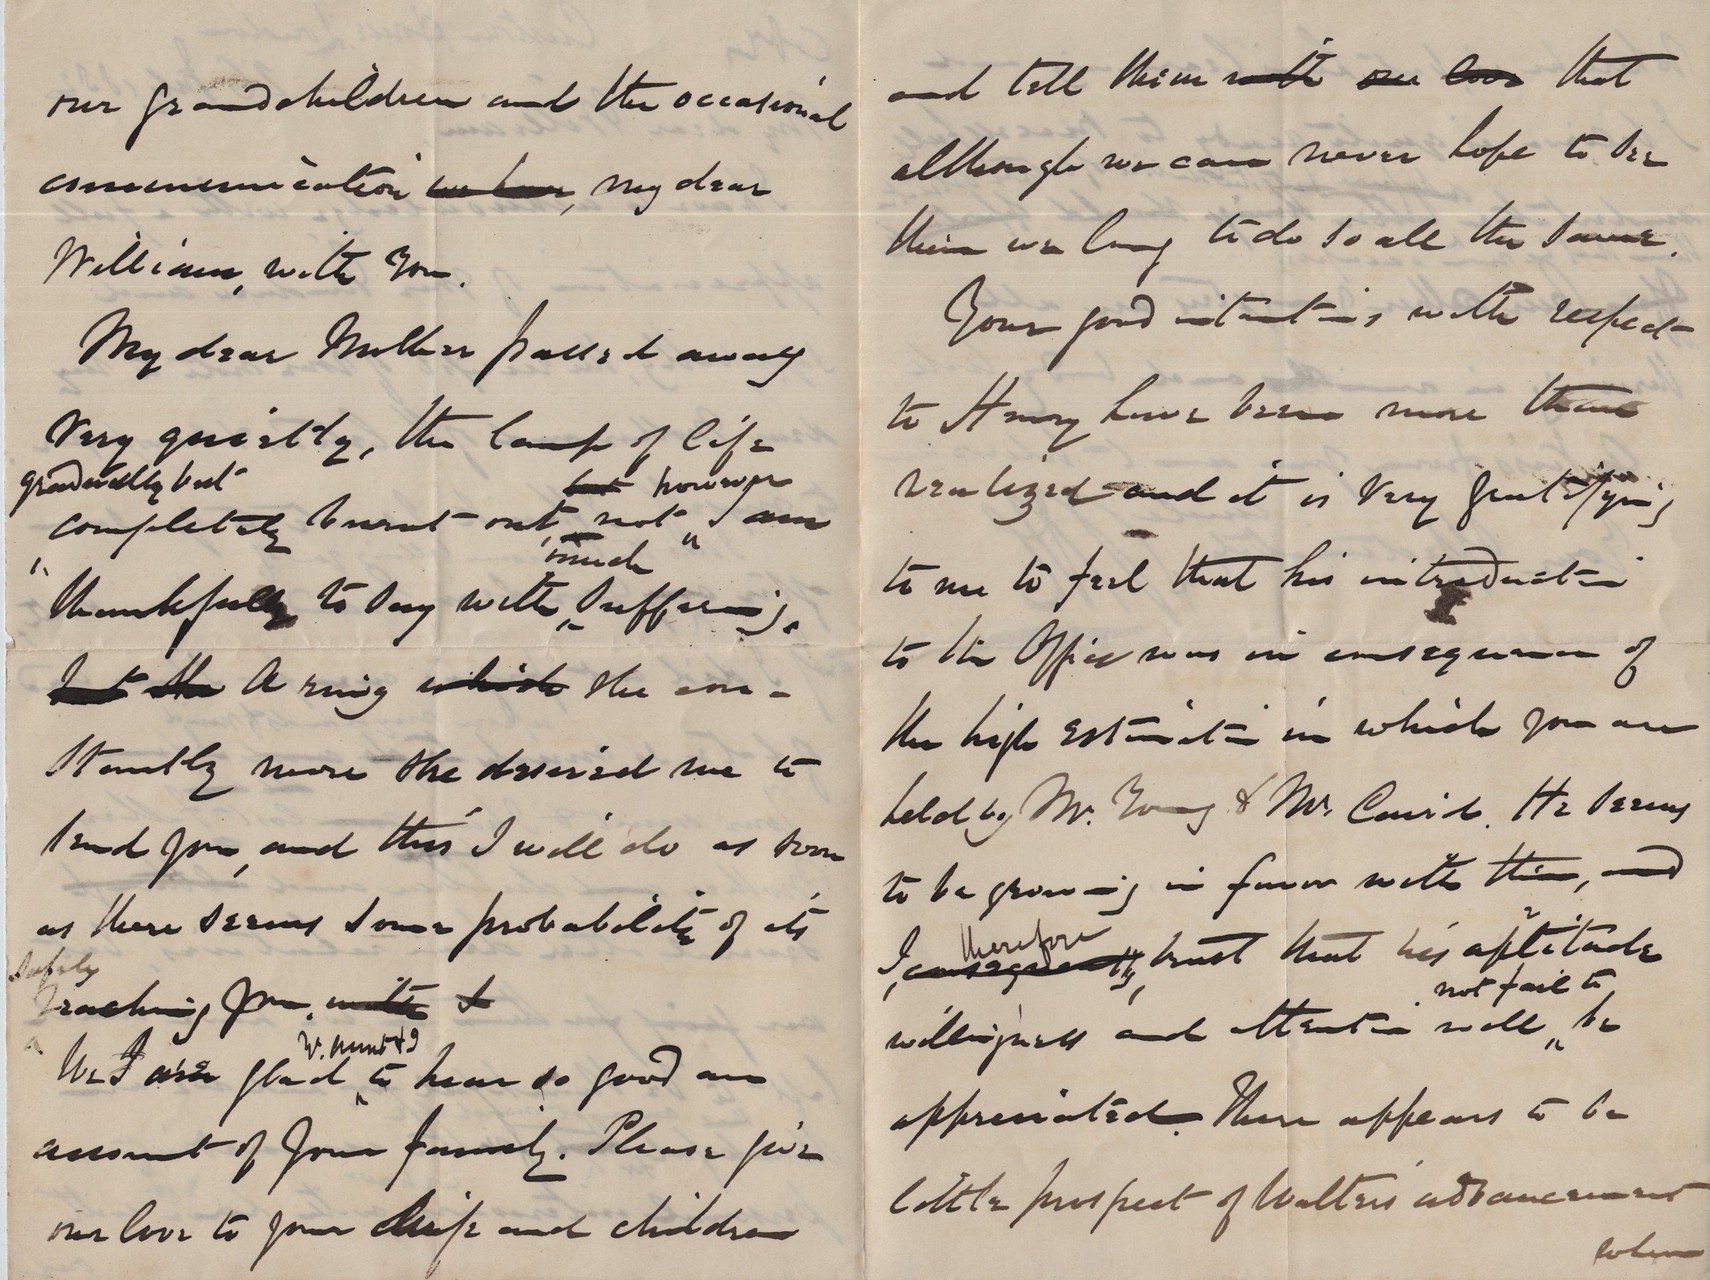 our grandchildren and the occasional
communication we have, my dear
William, with you.
My dear Mother passed away
very quietly, the lamp of life
gradually but
but however
completely burnt out, not I am
much
thankfully to say with suffering.
but the A ring which she con-
stantly wore she desired me to
send you, and this I will do as soon
as there seems some probability of its
safely
reaching you. with I
W. Aunt & I
We I are glad to hear so good an
account of your family. Please give
our love to your wife and children
and tell them with our love that
although we can never hope to see
them we long to do so all the same.
Your good intentions with respect
to Henry have been more than
realized and it is very gratifying
to me to feel that his introduction
to the Office was in consequence of
the high estimation in which you are
held by Mr. Young & Mr. He seems
to be growing in favor with them, and
therefore
I, consequently, trust that his aptitude
not fail to
willingness and attention will be
appreciated. There appears to be
little prospect of Walter's advancement
when